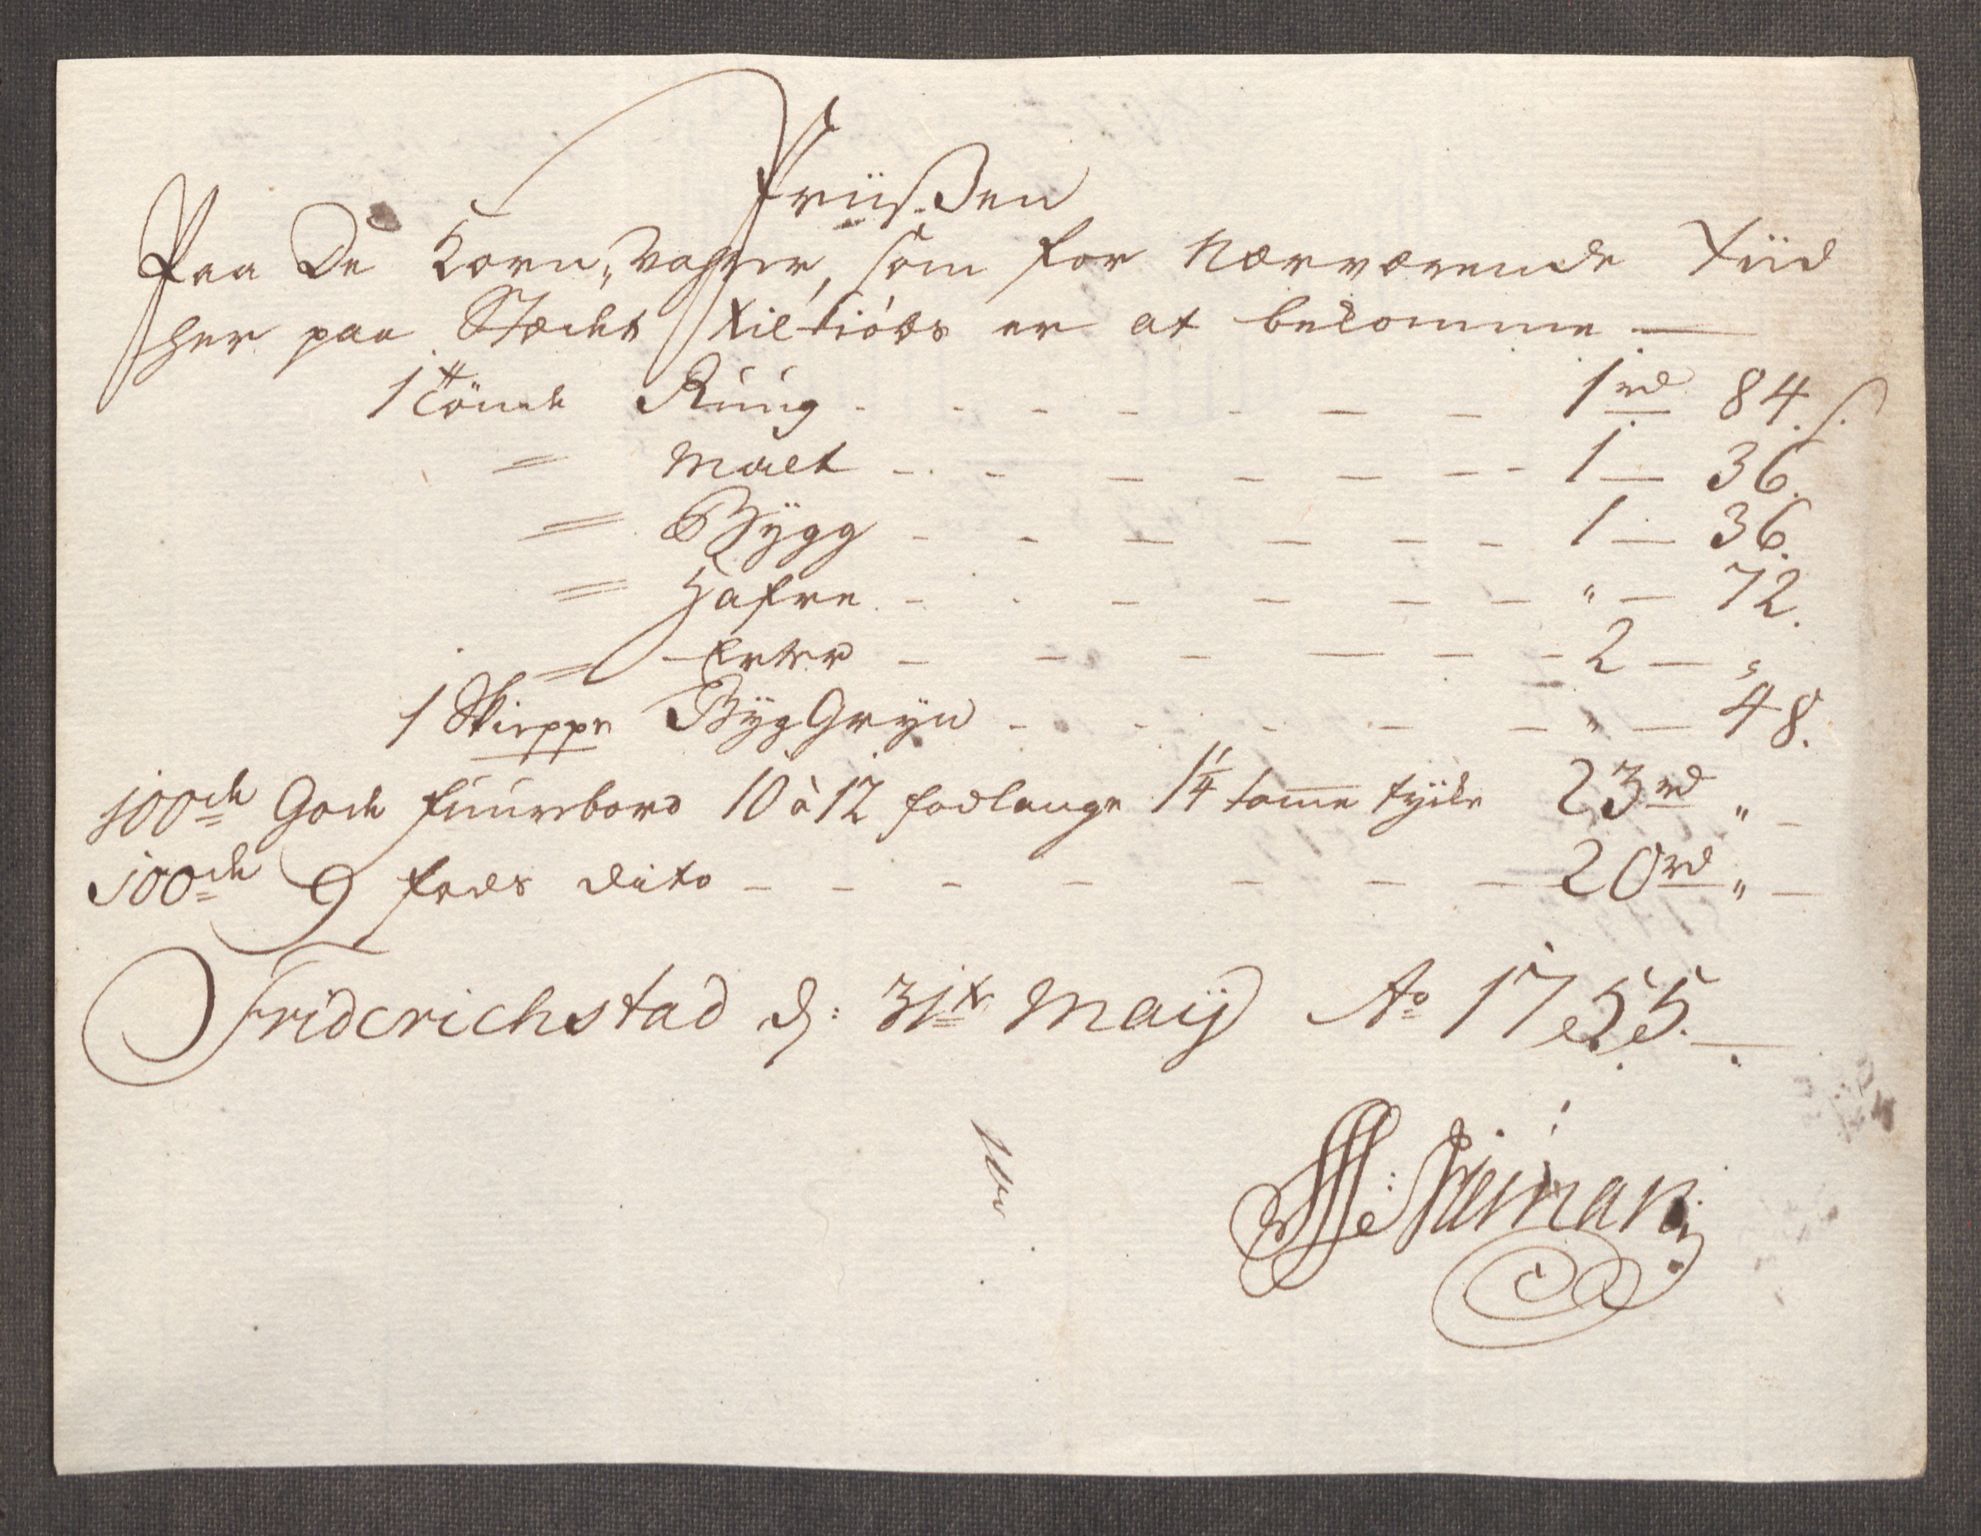 Priißen
Paa De Korn, Vahrer, som for Nærværende Tiid
her paa Stædet til kiøbs er at bekomme —
1 Tönde Rüug - - - - - - - 1 rd 84 s.
= Malt - - - - - - - 1 — 36.
= Bÿgg - - - - - - 1 — 36.
= Hafre - - - - - - " — 72.
= Erter - - - - - - 2 — "
1 Skieppe Bÿg Grÿn - - - - - - " — 48.
100de Gode fuurebord 10 à 12 fodlange 1 1/4 tomme tÿke 23 rd " —
100de 9 fods dito - - - - - - - 20 rd " —
Friderichstad d: 31te Maÿ Ao 1755. —